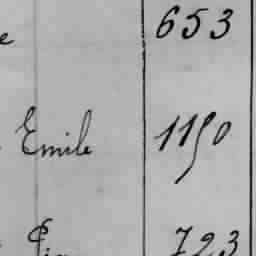 e 653
Emile 1150
Pi 723